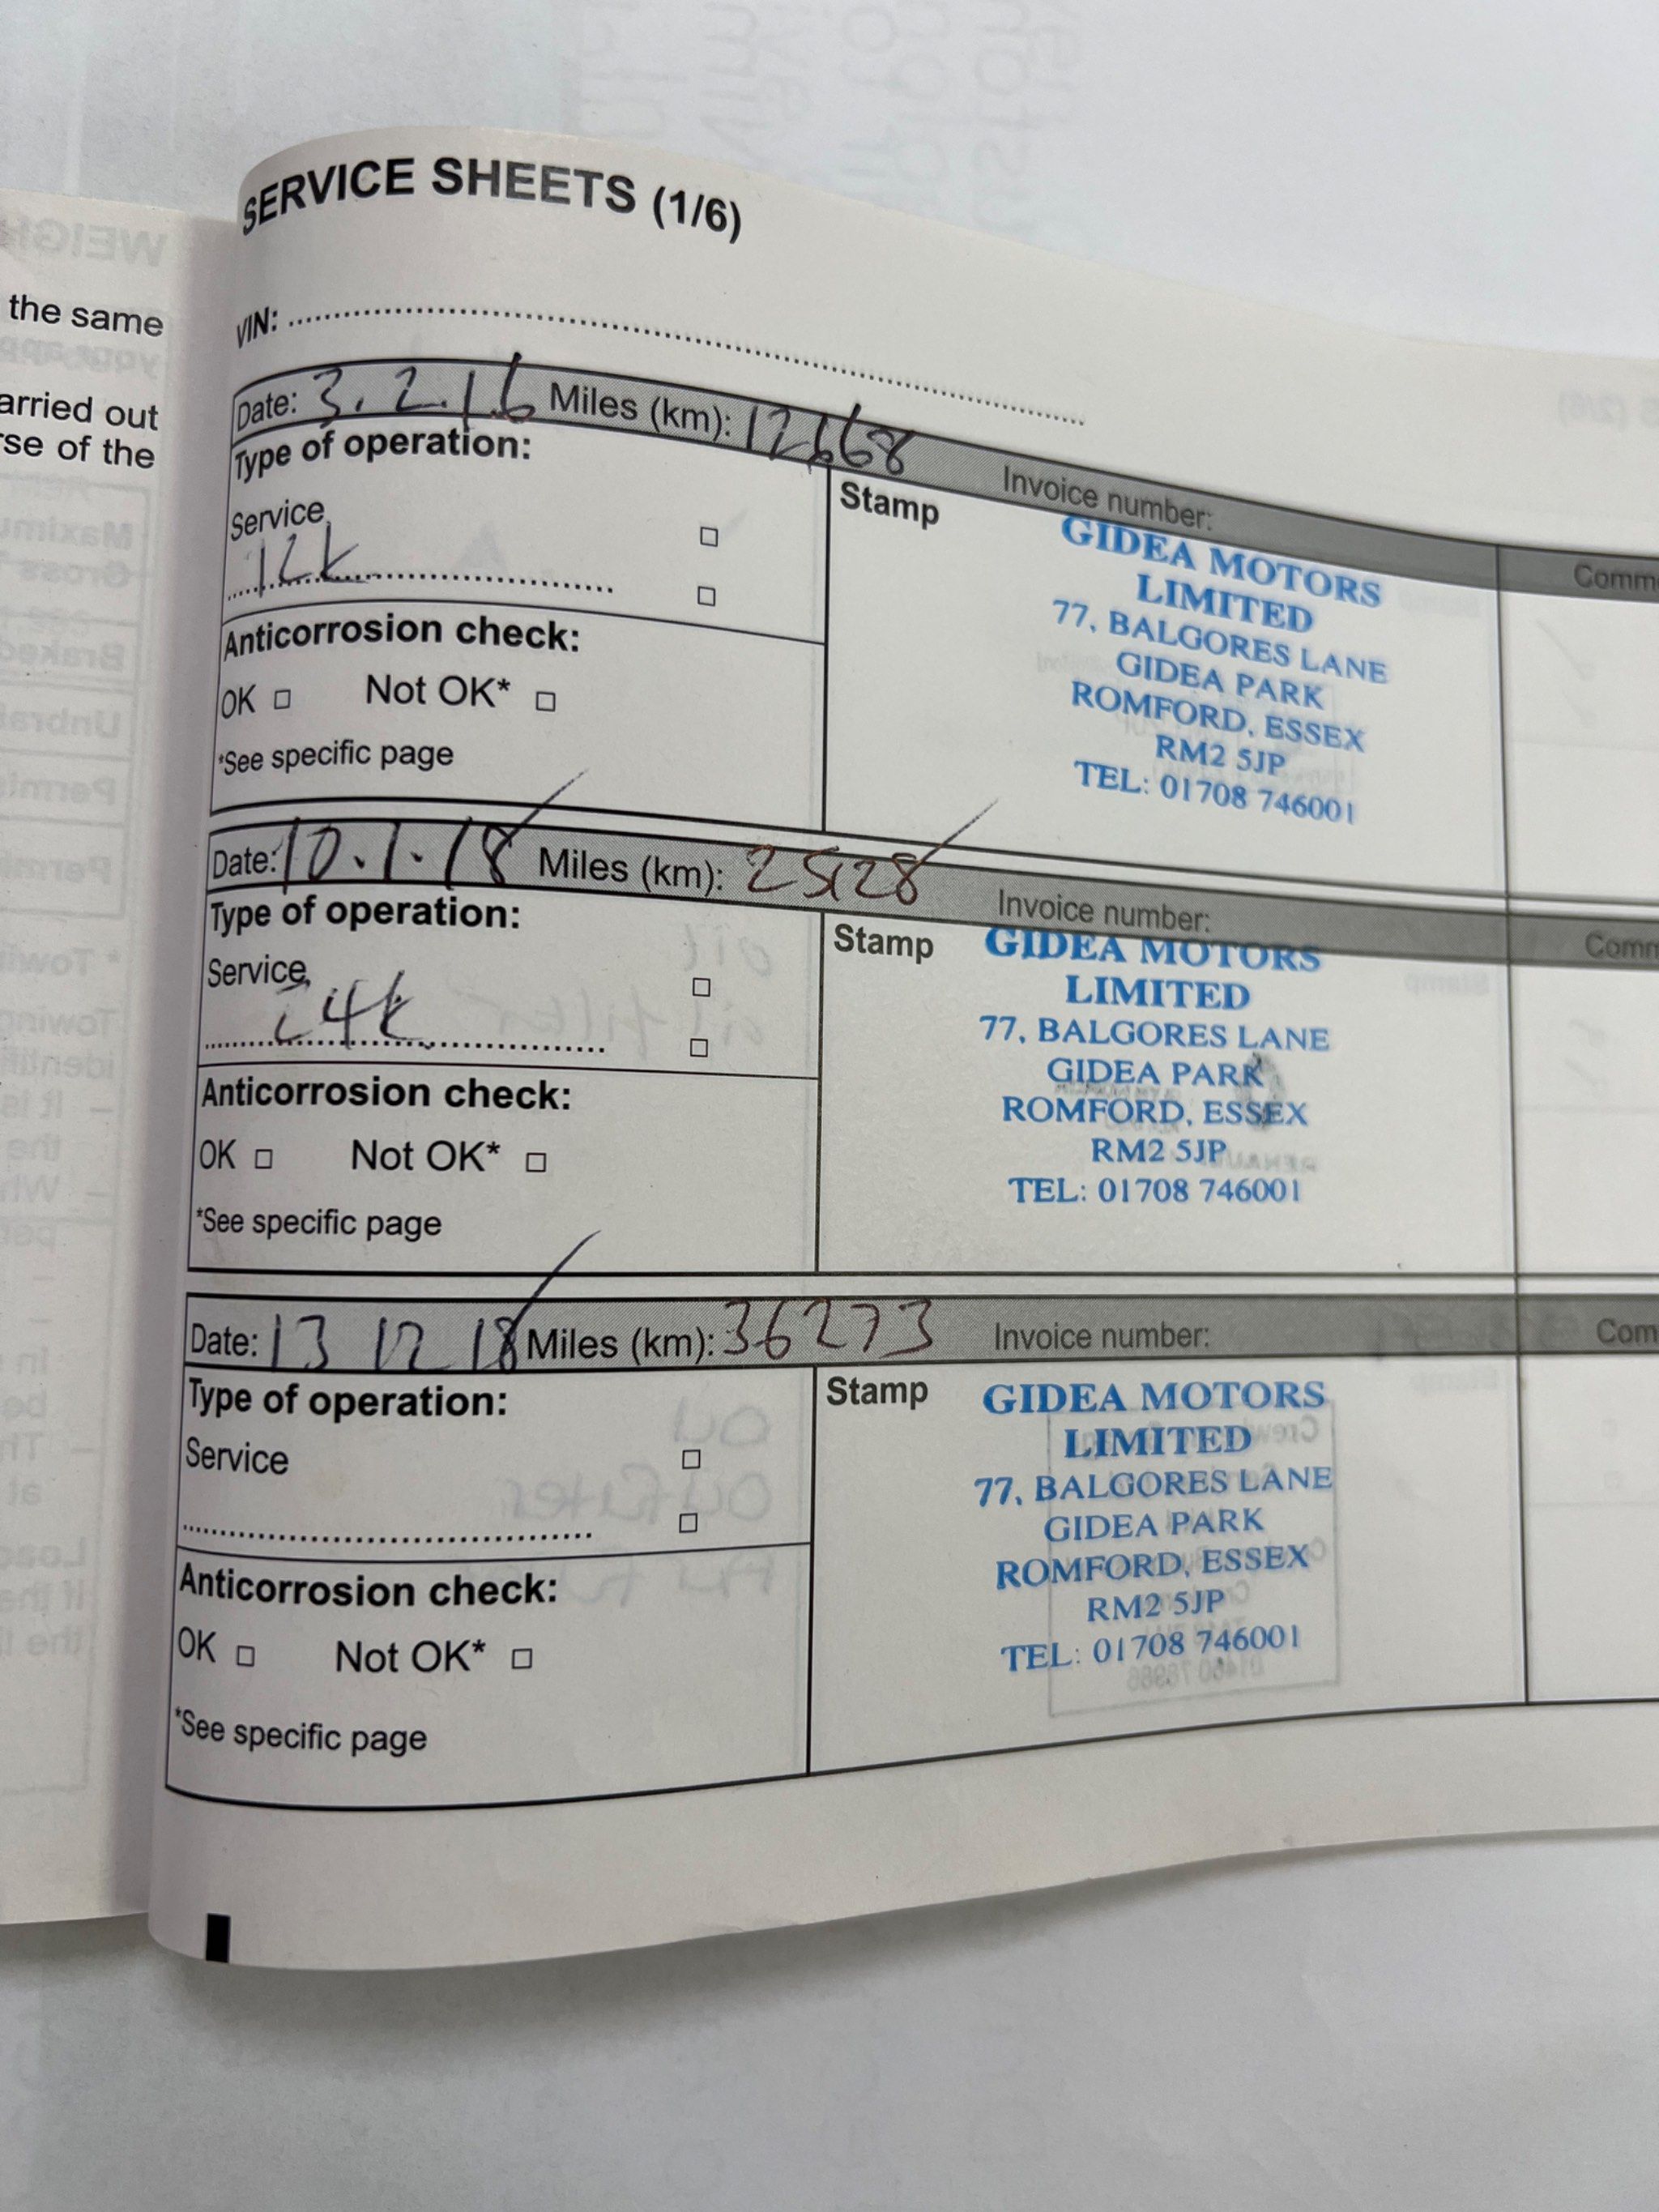 the same
arried out
rse of the
SERVICE SHEETS (1/6)
VIN:
Date: 3.2.16 Miles (km): 12668 Invoice number:
Type of operation:
Service
12k
Anticorrosion check:
OK Not OK*
*See specific page
Stamp
GIDEA MOTORS
LIMITED
77, BALGORES LANE
GIDEA PARK
ROMFORD, ESSEX
RM2 5JP
TEL: 01708 746001
Comm
Date: 10.1.18 Miles (km): 25128 Invoice number:
Type of operation:
Service
24k
Anticorrosion check:
OK Not OK*
*See specific page
Stamp
GIDEA MOTORS
LIMITED
77, BALGORES LANE
GIDEA PARK
ROMFORD, ESSEX
RM2 5JP
TEL: 01708 746001
Comm
Date: 13 12 18 Miles (km): 36273 Invoice number:
Type of operation:
Service
Anticorrosion check:
OK Not OK*
*See specific page
Stamp
GIDEA MOTORS
LIMITED
77, BALGORES LANE
GIDEA PARK
ROMFORD, ESSEX
RM2 5JP
TEL: 01708 746001
Com